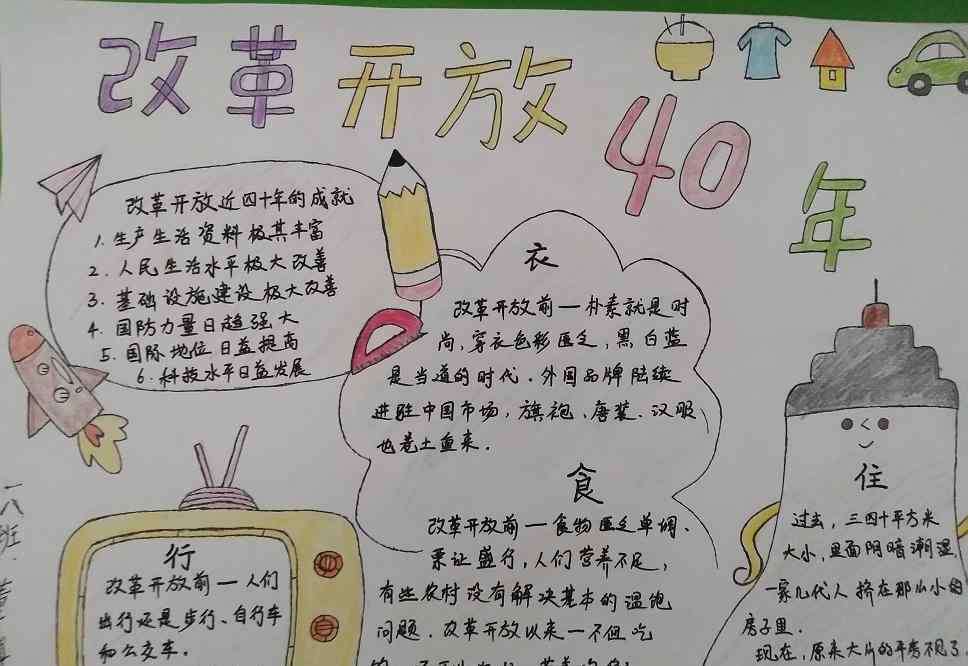 改革开放
40
年
改革开放近四十年的成就
1. 生产生活资料极其丰富
2. 人民生活水平极大改善
3. 基础设施建设极大改善
4. 国防力量日趋强大
5. 国际地位日益提高
6. 科技水平日益发展
衣
改革开放前一朴素就是时
尚,穿衣色彩匮乏,黑白蓝
是当道的时代.外国品牌陆续
进驻中国市场,旗袍、唐装、汉服
也卷土重来.
食
改革开放前一食物匮乏单调、
票证盛行,人们营养不足,
有些农村没有解决基本的温饱
问题.改革开放以来一不但吃
行
改革开放前一人们
出行还是步行、自行车
和公交车.
住
过去,三四十平方米
大小,里面阴暗潮湿,
一家几代人挤在那么小的
房子里.
现在,原来大片的平房不见了
八班